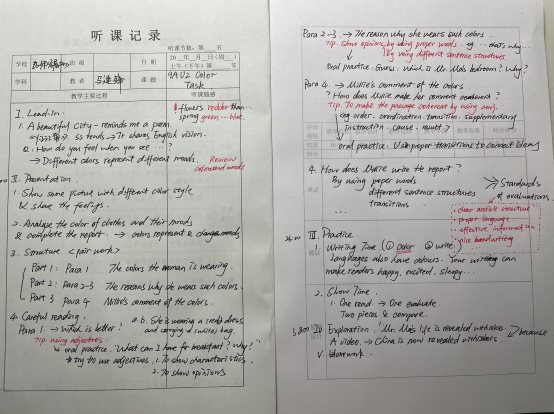 听课记录
听课节数：第 节
学校
班级
日期
20 年 月 日（周 ）
上午（下午）第 节
教者
课题
9A U2 Color
Task
教学主要过程
听课随感
flowers redder than...
spring green... blue
I. Lead-in.
1. A beautiful city - reminds me a poem.
《忆江南》 ss tends → Tr shares English vision.
Q: How do you feel when you see ...?
→ Different colors represent different moods.
Review
colours and moods
II. Presentation
1. Show same picture with different color style
& share the feelings.
2. Analyse the color of clothes and their moods
& complete the report. → colors represent & change moods
3. Structure <pair work>
Part 1: Para 1 The colors the woman is wearing.
Part 2: Para 2-3 The reasons why she wears such colors.
Part 3 Para 4 Millie's comment of the colors.
4. Careful reading.
Para 1. → Which is better? a. b. She is wearing a (red) dress
and carrying a (white) bag.
Tip: using adjectives
oral practice. "What can I have for breakfast? Why?"
* try to use adjectives. 1. To show characteristics.
2. To show opinions
Para 2-3. → The reason why she wears such colors.
Tip: Show opinions by using proper words. eg. ... that's why...
by using different sentence structures
Oral practice: Guess. Which is Mr. Ma's bedroom? Why?
Para 4. → Millie's comment of the colors
? How does Millie make her comment coherent?
Tip: To make the passage coherent by using conj.
eg. order. coordination. transition. supplementary
Instruction. cause. result
oral practice: Use proper transitions to connect ideas
4. How does Millie write the report?
By using proper words
different sentence structures
transitions
...
Standards
of evaluations
· clear article structure
· proper language
· effective information
· nice handwriting
III. Practice.
1. Writing Time ① color ② write
Languages also have colours. Your writing can
make readers happy, excited, sleepy...
2. Show Time.
1. One read → One evaluate.
Two pieces & compare.
IV. Exploration: Mr. Ma's life is revealed with colors
because
A video. → China is now revealed with colors.
V. Homework.